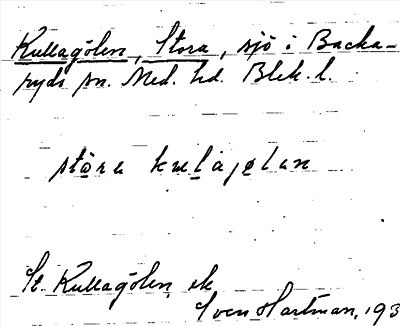 Kullagölen, Stora, sjö i Backa-
ryds sn. Med. hd. Blek. l.
stōra kuelajølan
St. Kullagölen, ek
Sven Hartman, 193